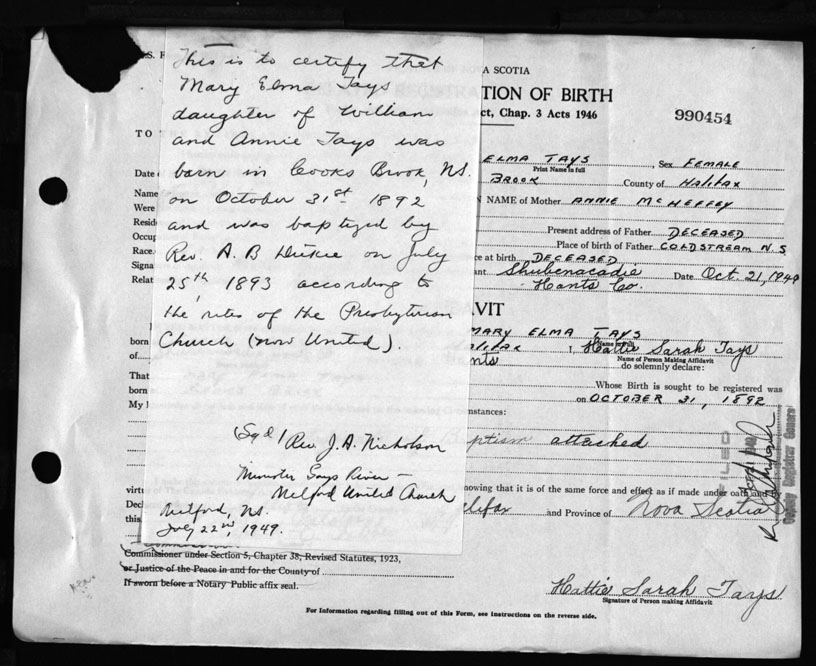 This is to certify that
Mary Elma Tays
daughter of William
and Annie Tays was
born in Cooks Brook, NS.
on October 31st 1892
and was baptized by
Rev. A. B Dickie on July
25th, 1893 according to
the rites of the Presbyterian
Church (now United).
(Sgd) Rev. J. A. Nicholson
Minister Gays River –
Milford United Church
Milford, NS.
July 22nd, 1949.
OVA SCOTIA
TION OF BIRTH
ct, Chap. 3 Acts 1946
990454
TO
ELMA TAYS, Sex FEMALE
Print Name in full
Date
BROOK County of HALIFAX
Name
NAME of Mother ANNIE MCHEFFEY
Were
Resid
Present address of Father DECEASED
Occup
Place of birth of Father COLDSTREAM N.S.
Race
ce at birth DECEASED
Signa
ant Shubenacadie Date Oct. 21, 1949
Relat
Hants Co.
AVIT
MARY ELMA TAYS
Name in full
born
alifax I, Hattie Sarah Tays
Name of Person Making Affidavit
of
nts do solemnly declare:
That
Whose Birth is sought to be registered was
born
on OCTOBER 31, 1892
My
mstances:
Baptism attached
FILED
Deputy Registrar General
virtu
nowing that it is of the same force and effect as if made under oath and by
Decl
this
alifax and Province of Nova Scotia
Commissioner under Section 5, Chapter 38, Revised Statutes, 1923,
or Justice of the Peace in and for the County of
If sworn before a Notary Public affix seal.
Hattie Sarah Tays
Signature of Person making Affidavit
For Information regarding filling out of this Form, see Instructions on the reverse side.